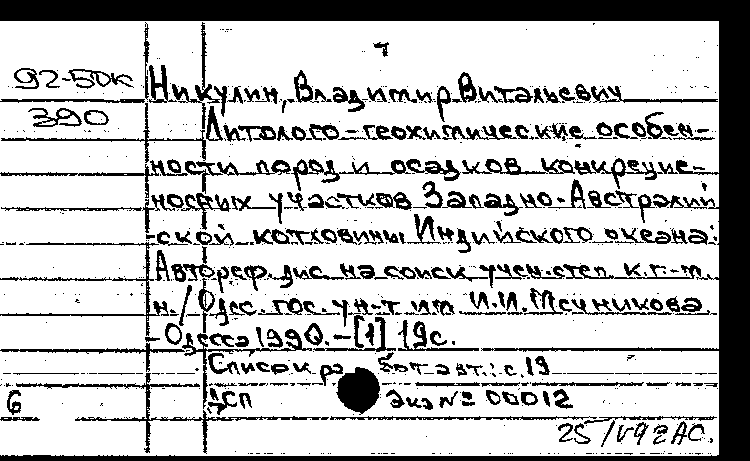 92-50к Никулин, Владимир Витальевич
390 Литолого-геохимические особен-
ности пород и осадков конкрецие-
носных участков Западно-Австралий
-ской котловины Индийского океана:
Автореф. дис. на соиск. учен. степ. к.г.-м.
н. / Одес. гос. ун-т им. И.И. Мечникова.
- Одесса 1990. - [1] 19с.
Список ра бот авт.: с.19
6 ДСП Экз № 00012
25/V92АС.